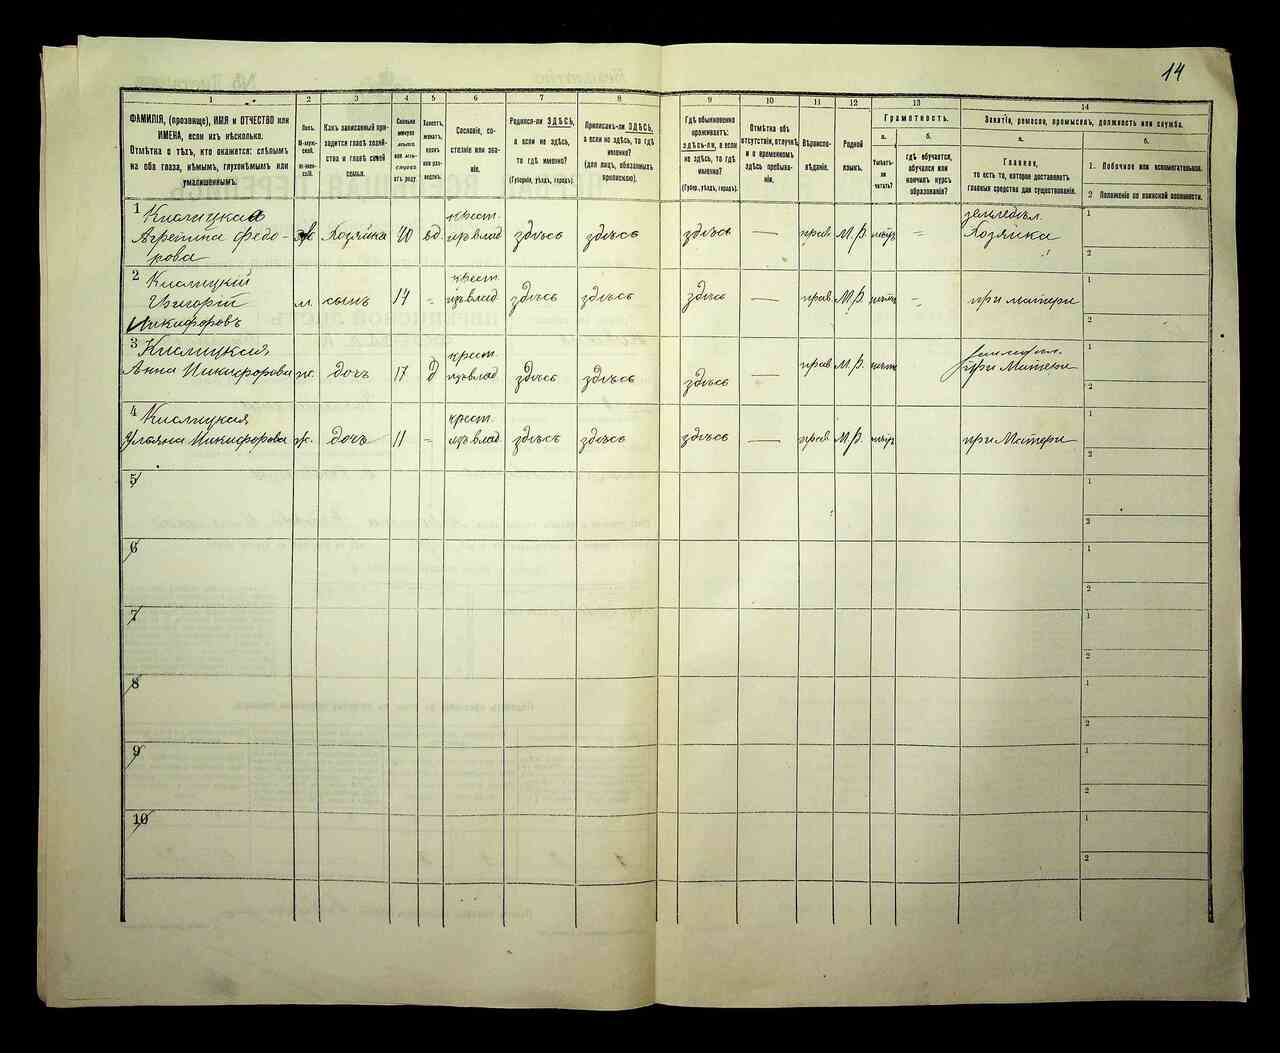 14
1
2
3
4
5
6
7
8
9
10
11
12
13
14
ФАМИЛІЯ, (прозвище), ИМЯ и ОТЧЕСТВО или
ИМЕНА, если ихъ нѣсколько.
Отмѣтка о тѣхъ, кто окажется: слѣпымъ
на оба глаза, нѣмымъ, глухонѣмымъ или
умалишеннымъ.
Полъ.
М-мужской.
Ж-женскій.
Какъ записанный при-
ходится главѣ хозяй-
ства и главѣ своей
семьи.
Сколько
минуло
лѣтъ
или мѣ-
сяцевъ
отъ роду.
Холостъ,
женатъ,
вдовъ
или раз-
веденъ.
Сословіе, со-
стояніе или зва-
ніе.
Родился-ли ЗДѢСЬ,
а если не здѣсь,
то гдѣ именно?
(Губернія, уѣздъ, городъ).
Приписанъ-ли ЗДѢСЬ,
а если не здѣсь, то гдѣ
именно?
(для лицъ, обязанныхъ
припискою).
Гдѣ обыкновенно
проживаетъ:
здѣсь-ли, а если
не здѣсь, то гдѣ
именно?
(Губер., уѣздъ, городъ).
Отмѣтка объ
отсутствіи, отлучкѣ
и о временномъ
здѣсь пребыва-
ніи.
Вѣроиспо-
вѣданіе.
Родной
языкъ.
Грамотность.
а.
Умѣетъ-
ли
читать?
б.
гдѣ обучается,
обучался или
кончилъ курсъ
образованія?
Занятіе, ремесло, промыселъ, должность или служба.
а.
Главное,
то есть то, которое доставляетъ
главныя средства для существованія.
б.
1. Побочное или вспомогательное.
2 Положеніе по воинской повинности.
1 Кислицкая
Агрепина Федо-
рова
ж Хозяйка 40 вд. крест. изъ влад здѣсь здѣсь здѣсь — прав. М.Р. нѣтъ - земледѣл. Хозяйка
1
2
2 Кислицкій
Григорій
Никифоровъ
м. сынъ 14 - крест. изъ влад здѣсь здѣсь здѣсь — прав. М.Р. нѣтъ - при матери
1
2
3 Кислицкая
Анна Никифорова ж. дочь 17 Д крест. изъ влад здѣсь здѣсь здѣсь — прав. М.Р. нѣтъ при Матери
1
2
4 Кислицкая
Ульяна Никифорова ж. дочь 11 - крест. изъ влад здѣсь здѣсь здѣсь — прав. М.Р. нѣтъ при Матери
1
2
5
1
2
6
1
2
7
1
2
8
1
2
9
1
2
10
1
2